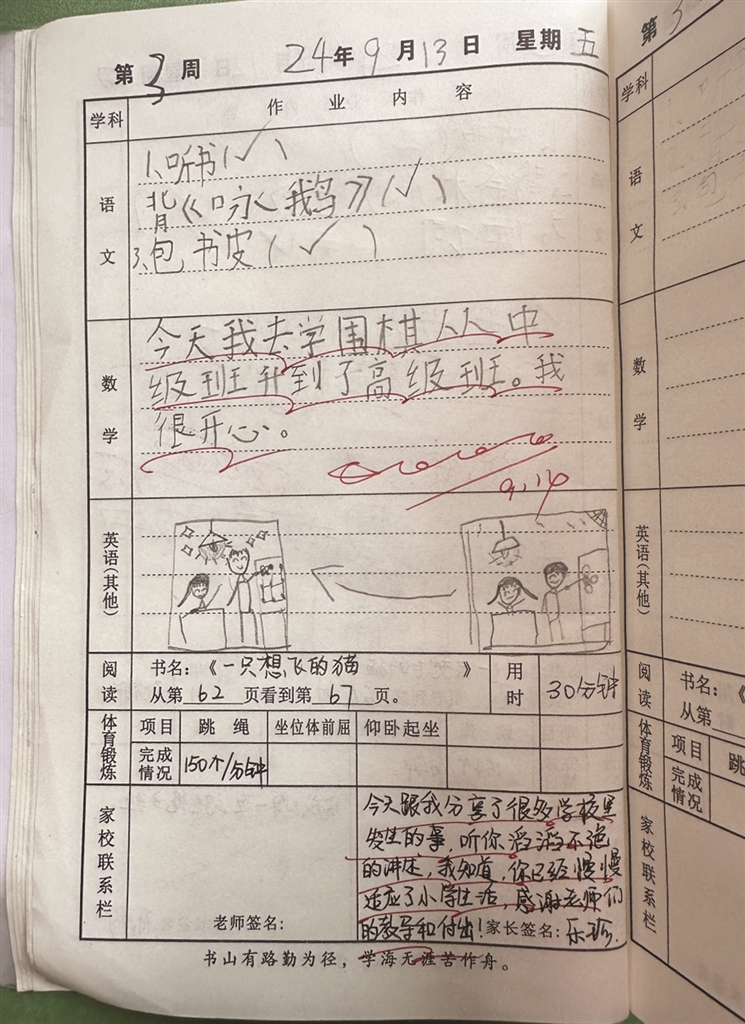 第3周 24年9月13日 星期五
学科 作业内容
语文
1、听书(✓)
背《咏鹅》(✓)
3、包书皮(✓)
数学
今天我去学围棋从中
级班升到了高级班。我
很开心。
9.14
英语(其他)
阅读
书名:《一只想飞的猫》
从第62页看到第67页。
用时
30分钟
体育锻炼
项目 跳绳 坐位体前屈 仰卧起坐
完成情况 150个/分钟
家校联系栏
今天跟我分享了很多学校里
发生的事,听你滔滔不绝
的讲述,我知道,你已经慢慢
适应了小学生活,感谢老师们
的教导和付出!
老师签名:
家长签名:
书山有路勤为径,学海无涯苦作舟。
第3
学科
语文
数学
英语(其他)
阅读
书名:《
从第
体育锻炼
项目 跳
完成情况
家校联系栏